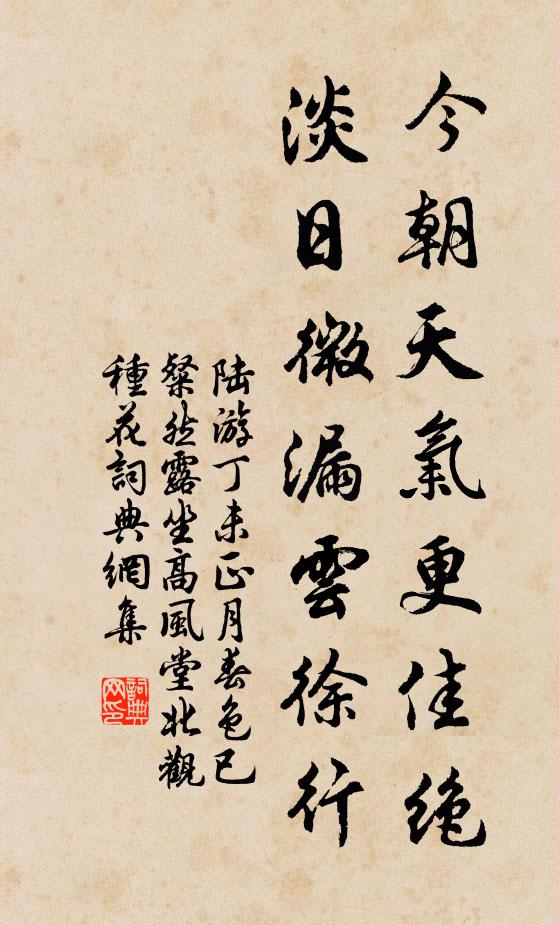 今朝天氣更佳絕
淡日微漏雲徐行
陆游丁未正月春色已
粲然露坐高風堂北觀
種花詞典網集
詞典网印